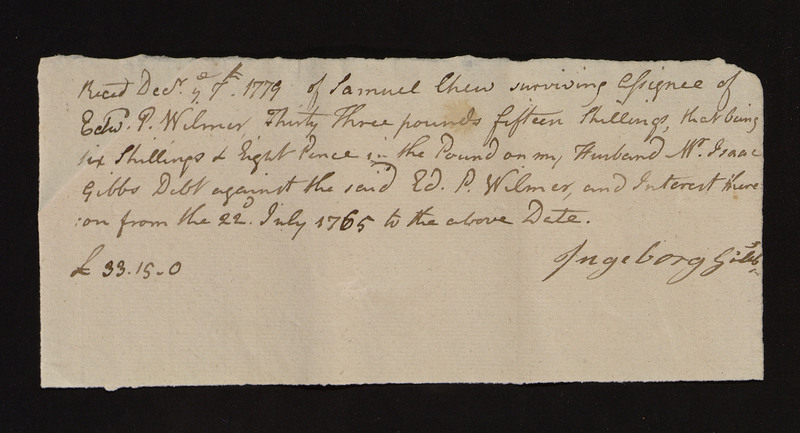 Reced Decr. ye 7th. 1779 of Samuel Chew surviving Assignee of
Edw. P. Wilmer, Thirty Three pounds fifteen Shillings, that being
six Shillings & Eight Pence in the Pound on my Husband Mr. Isaac
Gibbs Debt against the said Ed. P. Wilmer, and Interest there
:on from the 22d. July 1765 to the above Date.
£ 33.15.0
Ingeborg Gibbs